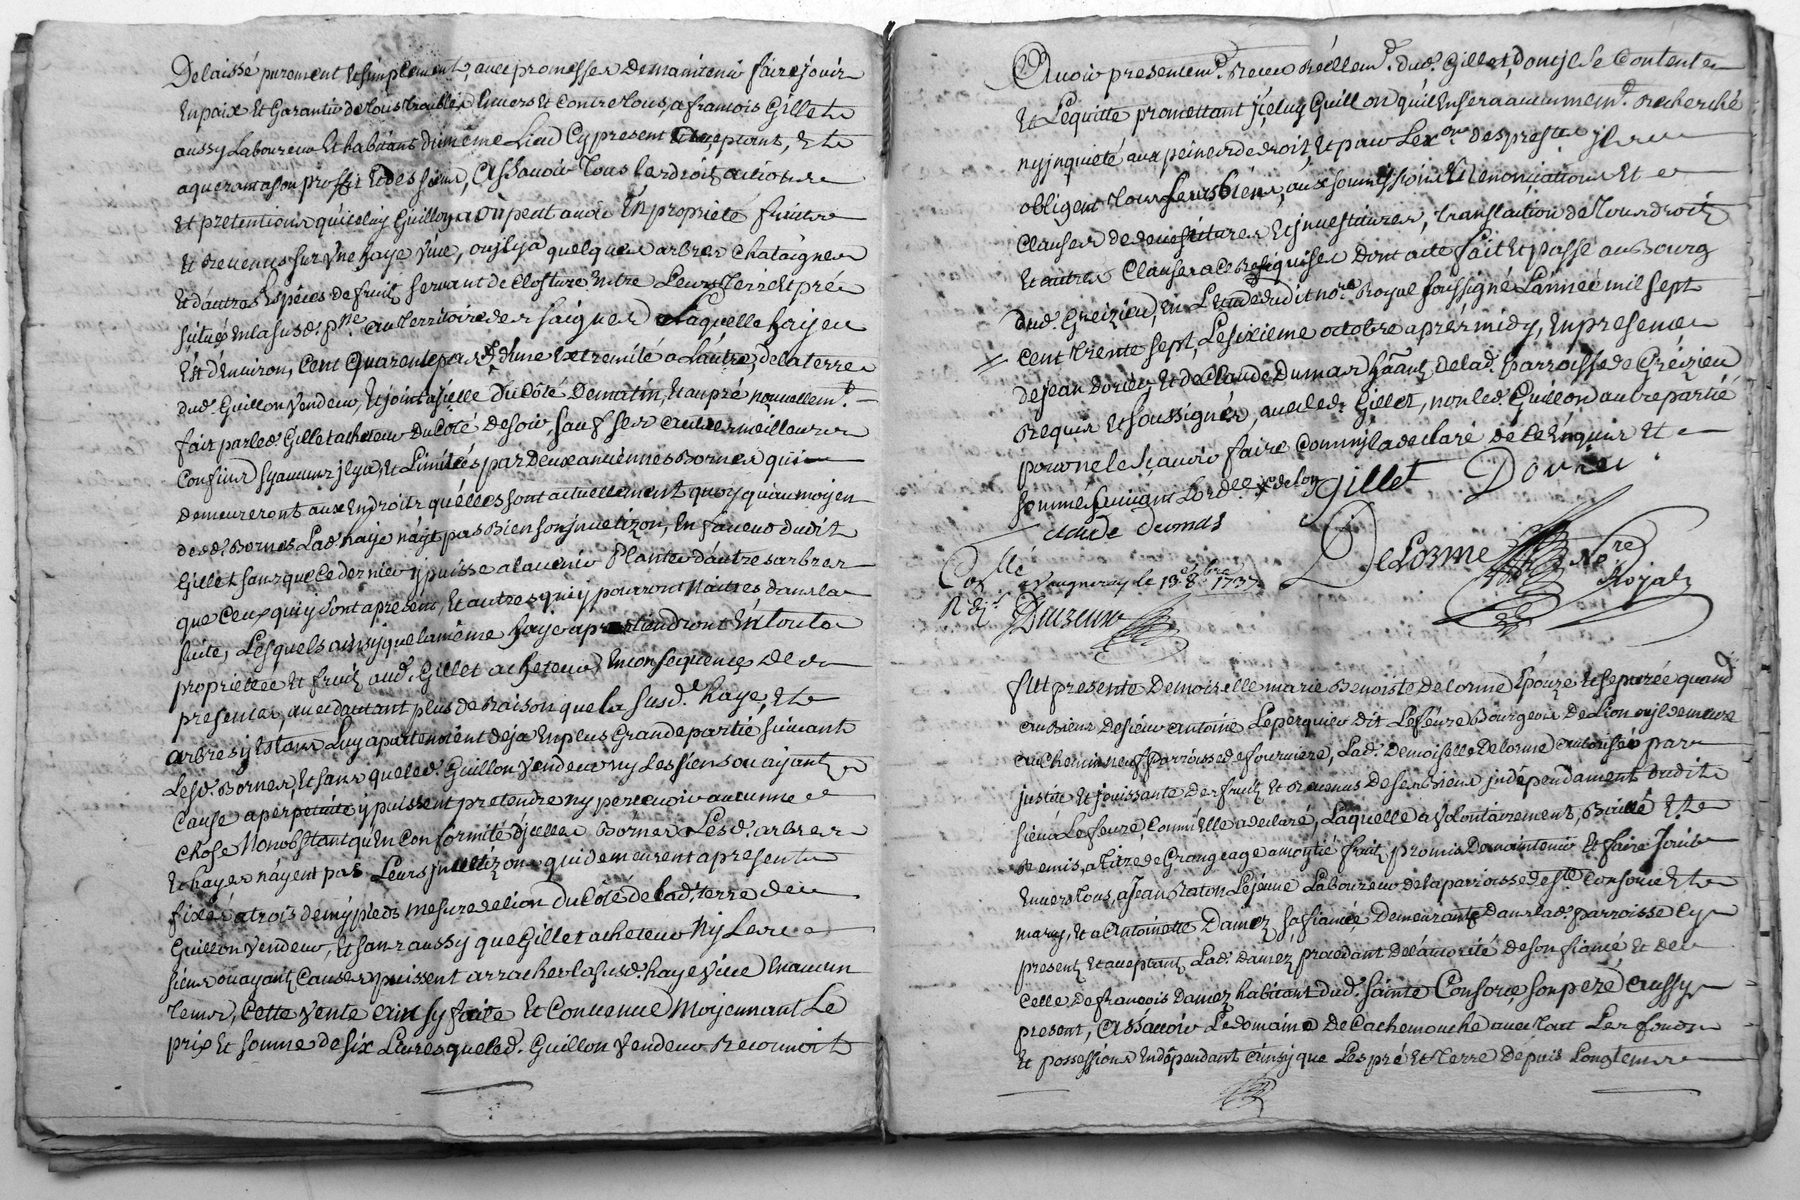 Delaissé purement et simplement, avec promesses de maintenir faire jouir
en paix et garantir de tous troubles envers et contre tous, a françois Gillet
aussy Laboureur et habitant du même Lieu Cy present acceptant, et
aquerant a son proffit et des siens, Assavoir tous les droits actions
et pretentions qu'iceluy Guillon a ou peut avoir En proprieté fruits
et revenus sur une haye vive, ou il y a quelques arbres chataigners
et d'autres Espéces de fruits servant de closture entre Leurs Terre et pré
situés en la susd. p.sse au Territoire des saignes Laquelle haye
Est d'Environ, Cent quarente pas d'une extremité a L'autre, de la terre
dud. Guillon vendeur, et joint a icelle Du côté De matin, et au pré nouvellem.t
fait par led. Gillet acheteur Du coté de soir, sauf ses autres meilleurs
Confins sy aucuns il y a, et Limités par Deux anciennes Bornes qui
Demeureront aux Endroits qu'elles sont actuellement quoy qu'au moyen
desd. Bornes Lad. haye n'ayt pas Bien son Invetizon, En faveur dudit
Gillet sans que ce dernier y puisse a lavenir Planter d'autres arbres
que Ceux qui y sont apresent, et autres qui y pourront Naitres dans la
suite, Lesquels ainsy que la même haye apartiendront En toute
proprietée et fruits aud. Gillet acheteur En consequence des
presentes, avec d'autant plus de raison que la susd.e haye, et
arbres y Estans Luy apartenoient deja En plus Grande partie suivant
Lesd. Bornes, et sans que led. Guillon vendeur ny Les siens ou ayants
Cause a perpetuité y puissent pretendre ny percevoir aucunne
chose Nonobstant qu'En Conformité d'icelles Bornes Lesd. arbres
et hayes n'ayent pas Leurs Invetizon qui demeurent apresent
fixés a trois demy pieds mesure de Lion Du côté de lad. terre de
Guillon vendeur, et sans aussy que Gillet acheteur Ny Les
siens ou ayants Causes y puissent arracher la susd. haye vive En aucun
Tems, Cette vente ainsy faite et Convenue Moyennant Le
prix et somme de six Livres que led. Guillon vendeur Reconnoit
Avoir presentem.t Receu Réellem.t dud. Gillet, dont il se Contente
et L'equitte promettant iceluy Guillon qu'il n'en sera aucunnem.t recherché
ny inquieté aux peines de droit, et pour L'ex.on des pres.tes ils
obligent tous leurs biens, aux soumissions renonciations et
Clauses de devestitures et investitures, translation de tous droits
et autres Clauses a ce Requises Dont acte fait et passé au Bourg
dud. Greizieu, en L'etude dudit no.re Royal soussigné L'année mil sept
cent trente sept, Le sixieme octobre aprés midy, En presence
de jean dorier et de Claude Dumas hâants de lad. parroisse de Greizieu
Requis et soussignés, avec led. Gillet, non led. Guillon autre partie
pour ne le sçavoir faire comm'il a declaré de ce enquis et
sommé suivant L'ord.ce
gillet Dorier
claude dumas
DeLorme No.re Royal
Con.llé a Vaugneray le 13 8.bre 1737
R. dix s.
Fut presente Demoiselle marie Benoiste Delorme Epouze et separée quand
aux Biens de sieur antoine Leperquier dit Lefeuze Bourgeois De Lion ou il demeure
au Chemin neuf parroisse de fourviere, Lad. Demoiselle Delorme authorisée par
justice et jouissante des fruits et revenus De ses Biens independament dudit
sieur Lefeuze comm'elle a declaré, Laquelle a volontairement, Baillé et
remis, a titre de Grangeage a moytié fruits, promis de maintenir et faire Jouir
envers tous, a Jean Raton Le jeune Laboureur de la parroisse de S.te Consorce et
marcy, et a Antoinette Damez sa fiancée Demeurante Dans lad. parroisse Cy
presents et acceptants, Lad. Damez procedant De L'autorité de son fiancé et de
celle de francois Damez habitant dud. sainte Consorce son pere aussy
present, Assavoir Le domaine De Cachemouche avec tout Les fonds
et possessions En dépendant ainsy que Les pré et Terre depuis Longtems